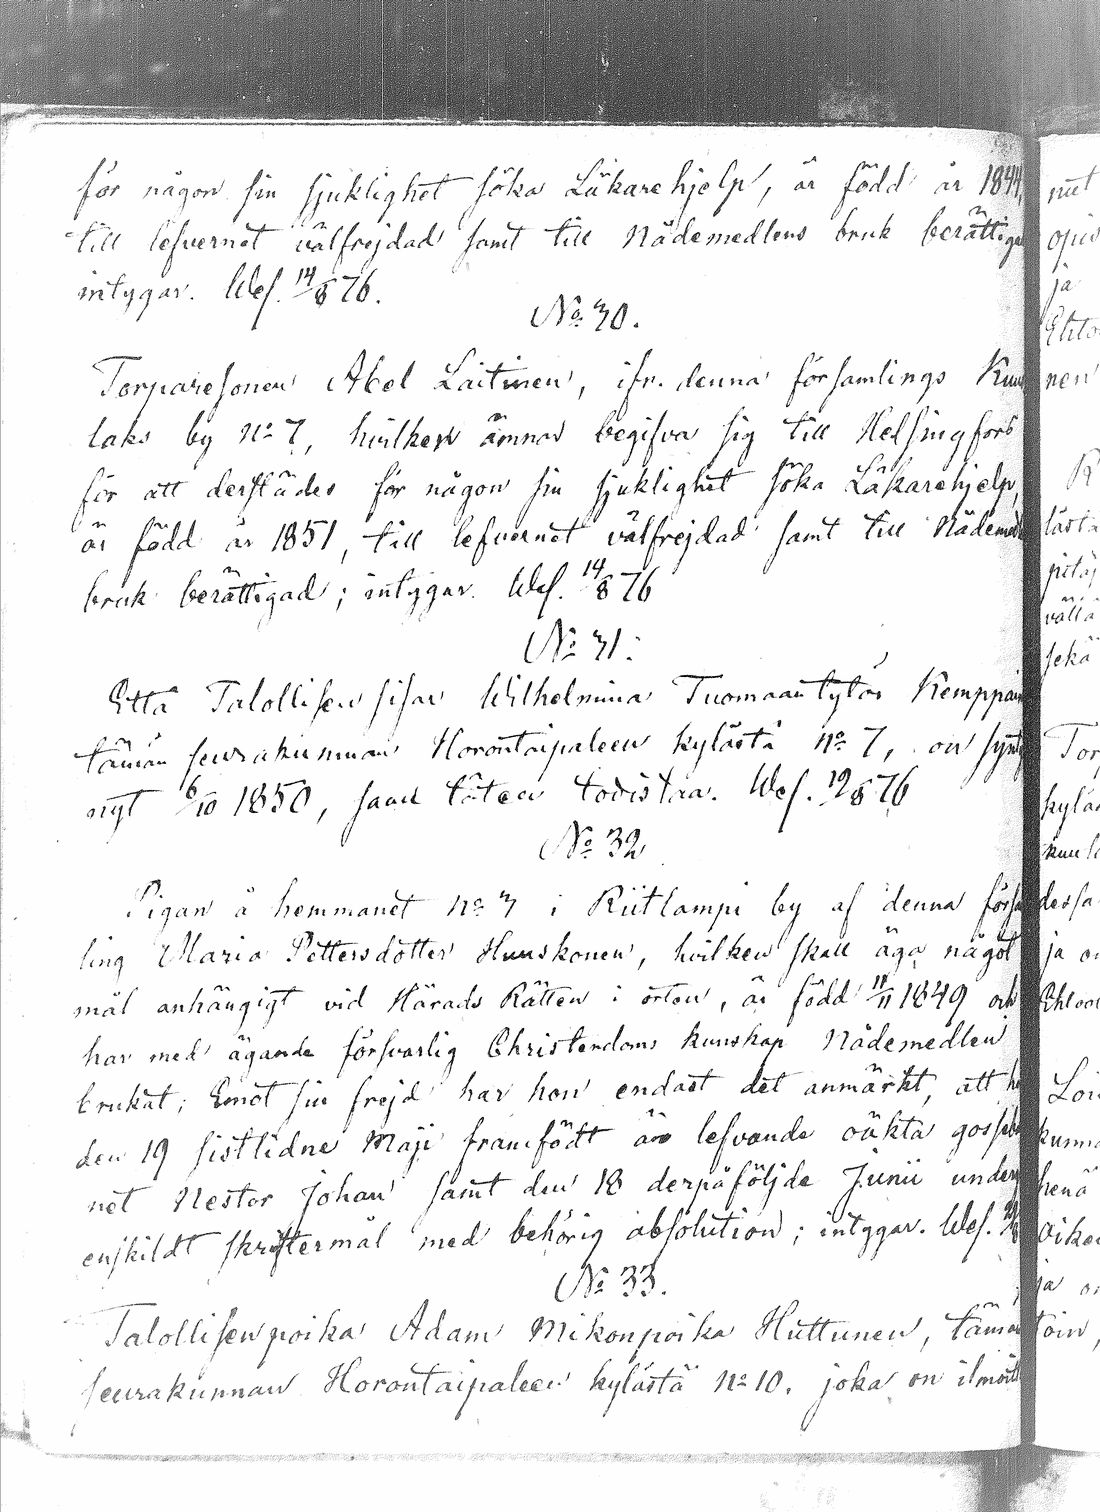 för någon sin sjuklighet söka Läkarehjelp, är född år 1844,
till lefvernet välfrejdad samt till Nådemedlens bruk berättigad
intygar. Wes. 14/8 76.
No 30.
Torparesonen Abel Laitinen, ifr. denna församlings Kuns
laks by No 7, hvilken ämnar begifva sig till Helsingfors
för att derstädes för någon sin sjuklighet söka Läkarehjelp,
är född år 1851, till lefvernet välfrejdad samt till Nådemed
bruk berättigad; intygar. Wes. 14/8 76
No 31.
Että Talollisen sisar Wilhelmina Tuomaantytär Kemppain
tämän seurakunnan Horontaipaleen kylästä No 7, on synty
nyt 6/10 1850, saan täten todistaa. Wes. 19/8 76
No 32
Pigan å hemmanet No 7 i Riitlampi by af denna försam
ling Maria Pettersdotter Huuskonen, hvilken skall äga något
mål anhängigt vid Härads Rätten i orten, är född 18/11 1849 och
har med ägande försvarlig Christendoms kunskap Nådemedlen
brukat; Emot sin frejd har hon endast det anmärkt, att h
den 19 sistlidne Maji framfödt än lefvande oäkta gosseba
net Nestor Johan samt den 18 derpåföljde Junii under
enskildt skriftermål med behörig absolution; intygar. Wes.
No 33.
Talollisen poika Adam Mikonpoika Huttunen, tämän
seurakunnan Horontaipaleen kylästä No 10. joka on ilmoit